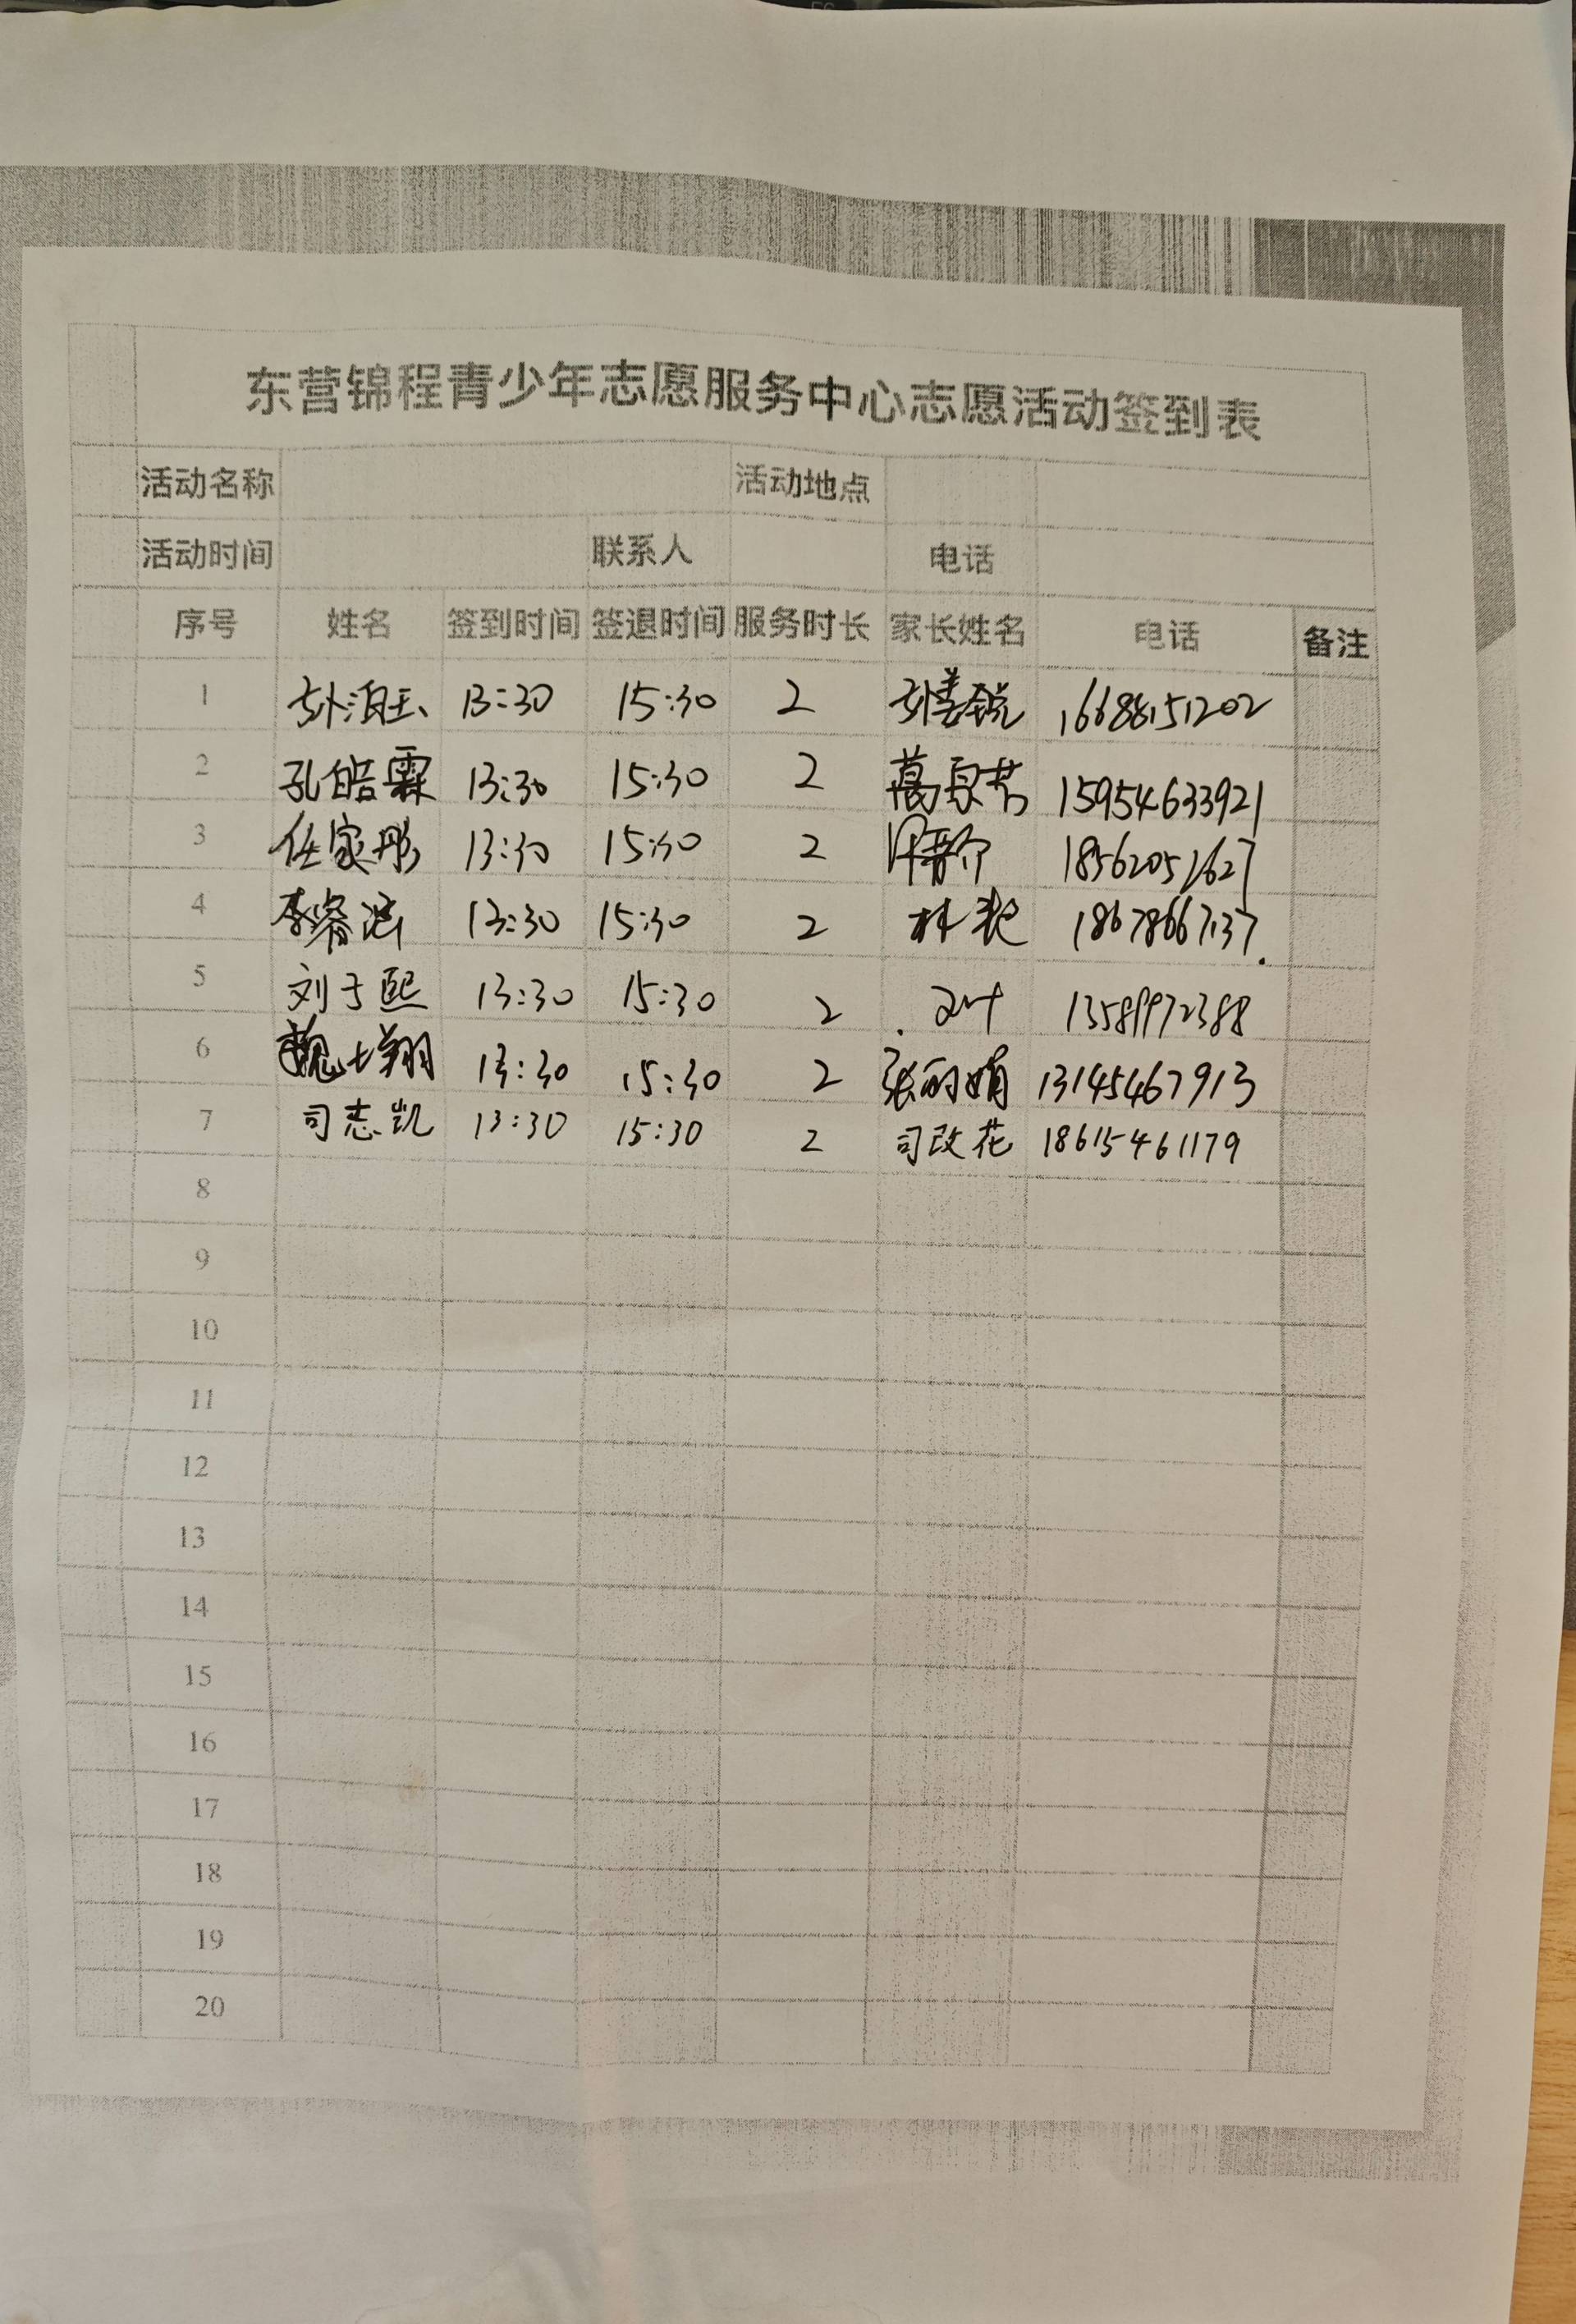 东营锦程青少年志愿服务中心志愿活动签到表
活动名称 活动地点
活动时间 联系人 电话
序号 姓名 签到时间 签退时间 服务时长 家长姓名 电话 备注
1 13:30 15:30 2 16688151202
2 孔皓霖 13:30 15:30 2 15954633921
3 任家彤 13:30 15:30 2 18562052627
4 李 涵 13:30 15:30 2 林 18678667137
5 刘于熙 13:30 15:30 2 13589972388
6 魏士翔 13:30 15:30 2 张丽娟 13145467913
7 司志凯 13:30 15:30 2 司改花 18615461179
8
9
10
11
12
13
14
15
16
17
18
19
20